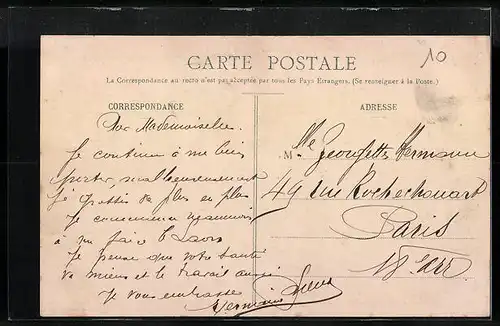 10
CARTE POSTALE
La Correspondance au recto n'est pas acceptée par tous les Pays Etrangers. (Se renseigner à la Poste.)
CORRESPONDANCE
ADRESSE
Mademoiselle
Je continue à me bien
porter malheureusement
je de plus en plus
Je commence
à me faire à
Je pense que votre santé
va mieux et le travail aussi
Je vous embrasse
Germaine
Mlle Georgette
49 rue Rochechouart
Paris
Arr